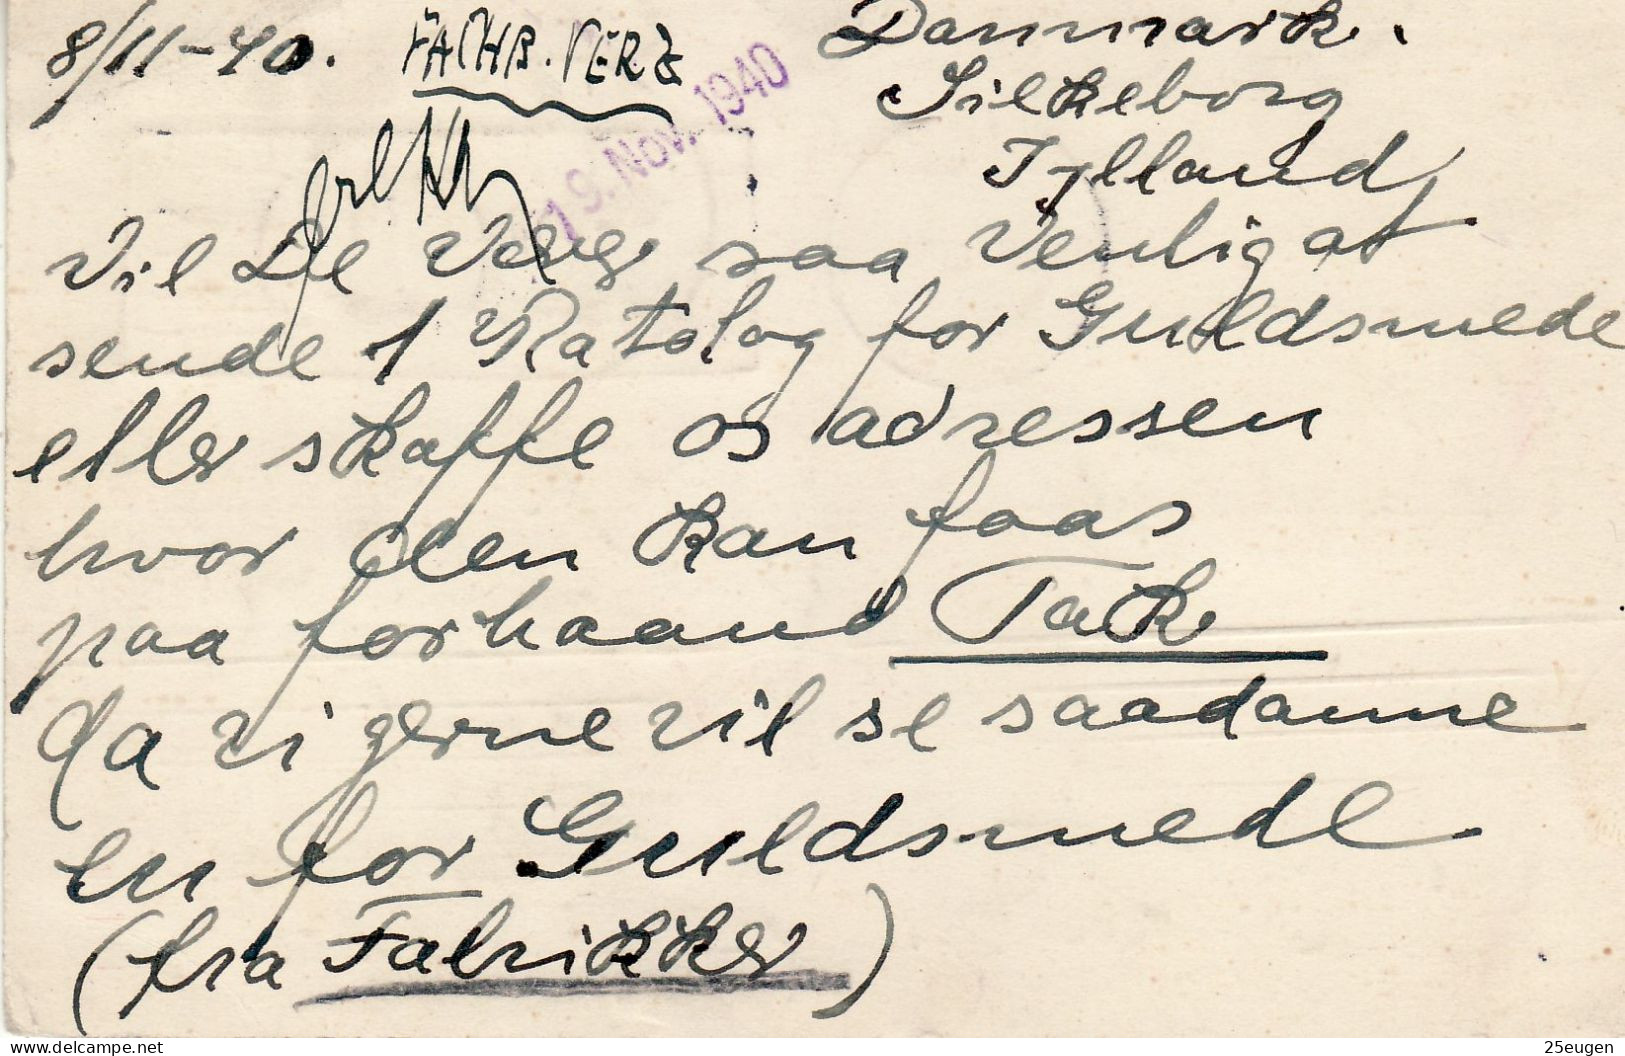 8/11-40. FACHB. VERZ
19. Nov. 1940
Danmark.
Silkeborg
Jylland,
Vil De Være saa Venlig at
sende 1 Katolog for Guldsmede
eller skaffe os adressen
hvor den kan faas
paa forhaand Tak
da vi gerne vil se saadanne
en for Guldsmede
(fra Fabrikker)
www.delcampe.net
25eugen